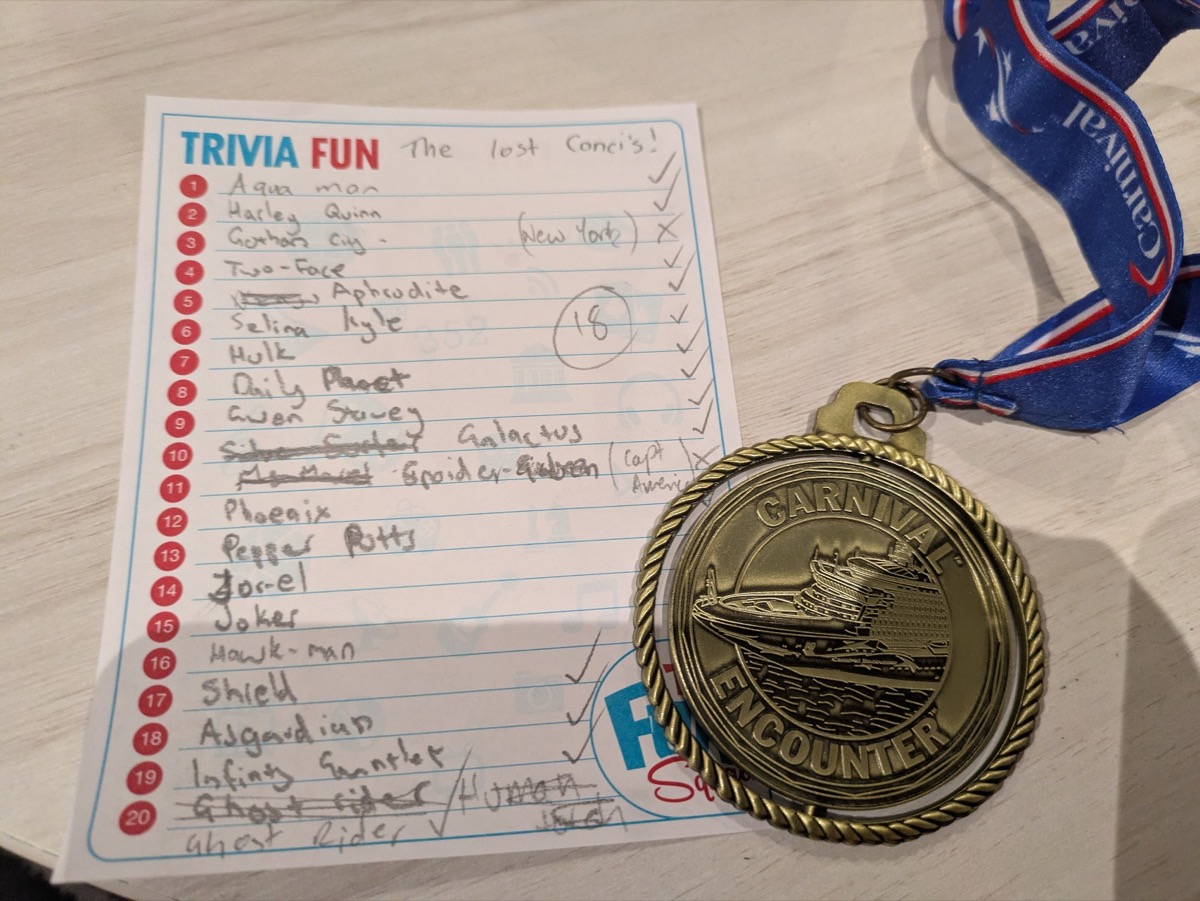 TRIVIA FUN The lost Conci's!
1 Aqua man
2 Harley Quinn
3 Gotham City - (New York) X
4 Two-Face
5 Aphrodite
6 Selina Kyle
18
7 Hulk
8 Daily Planet
9 Gwen Stacey
10 Silver Surfer Galactus
11 Spider- (Capt X
America
12 Phoenix
13 Pepper Potts
14 Jor-el
15 Joker
16 Hawk-man
17 Shield
18 Asgardian
19 Infinity Gauntlet
20 Ghost rider / Human
Ghost Rider
FU
Sq
CARNIVAL™
ENCOUNTER
Carnival
nival